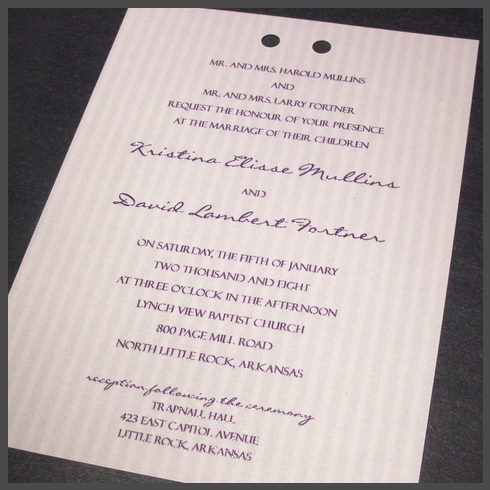 MR. AND MRS. HAROLD MULLINS
AND
MR. AND MRS. LARRY FORTNER
REQUEST THE HONOUR OF YOUR PRESENCE
AT THE MARRIAGE OF THEIR CHILDREN
Kristina Elisse Mullins
AND
David Lambert Fortner
ON SATURDAY, THE FIFTH OF JANUARY
TWO THOUSAND AND EIGHT
AT THREE O'CLOCK IN THE AFTERNOON
LYNCH VIEW BAPTIST CHURCH
800 PAGE MILL ROAD
NORTH LITTLE ROCK, ARKANSAS
reception following the ceremony
TRAPNALL HALL
423 EAST CAPITOL AVENUE
LITTLE ROCK, ARKANSAS